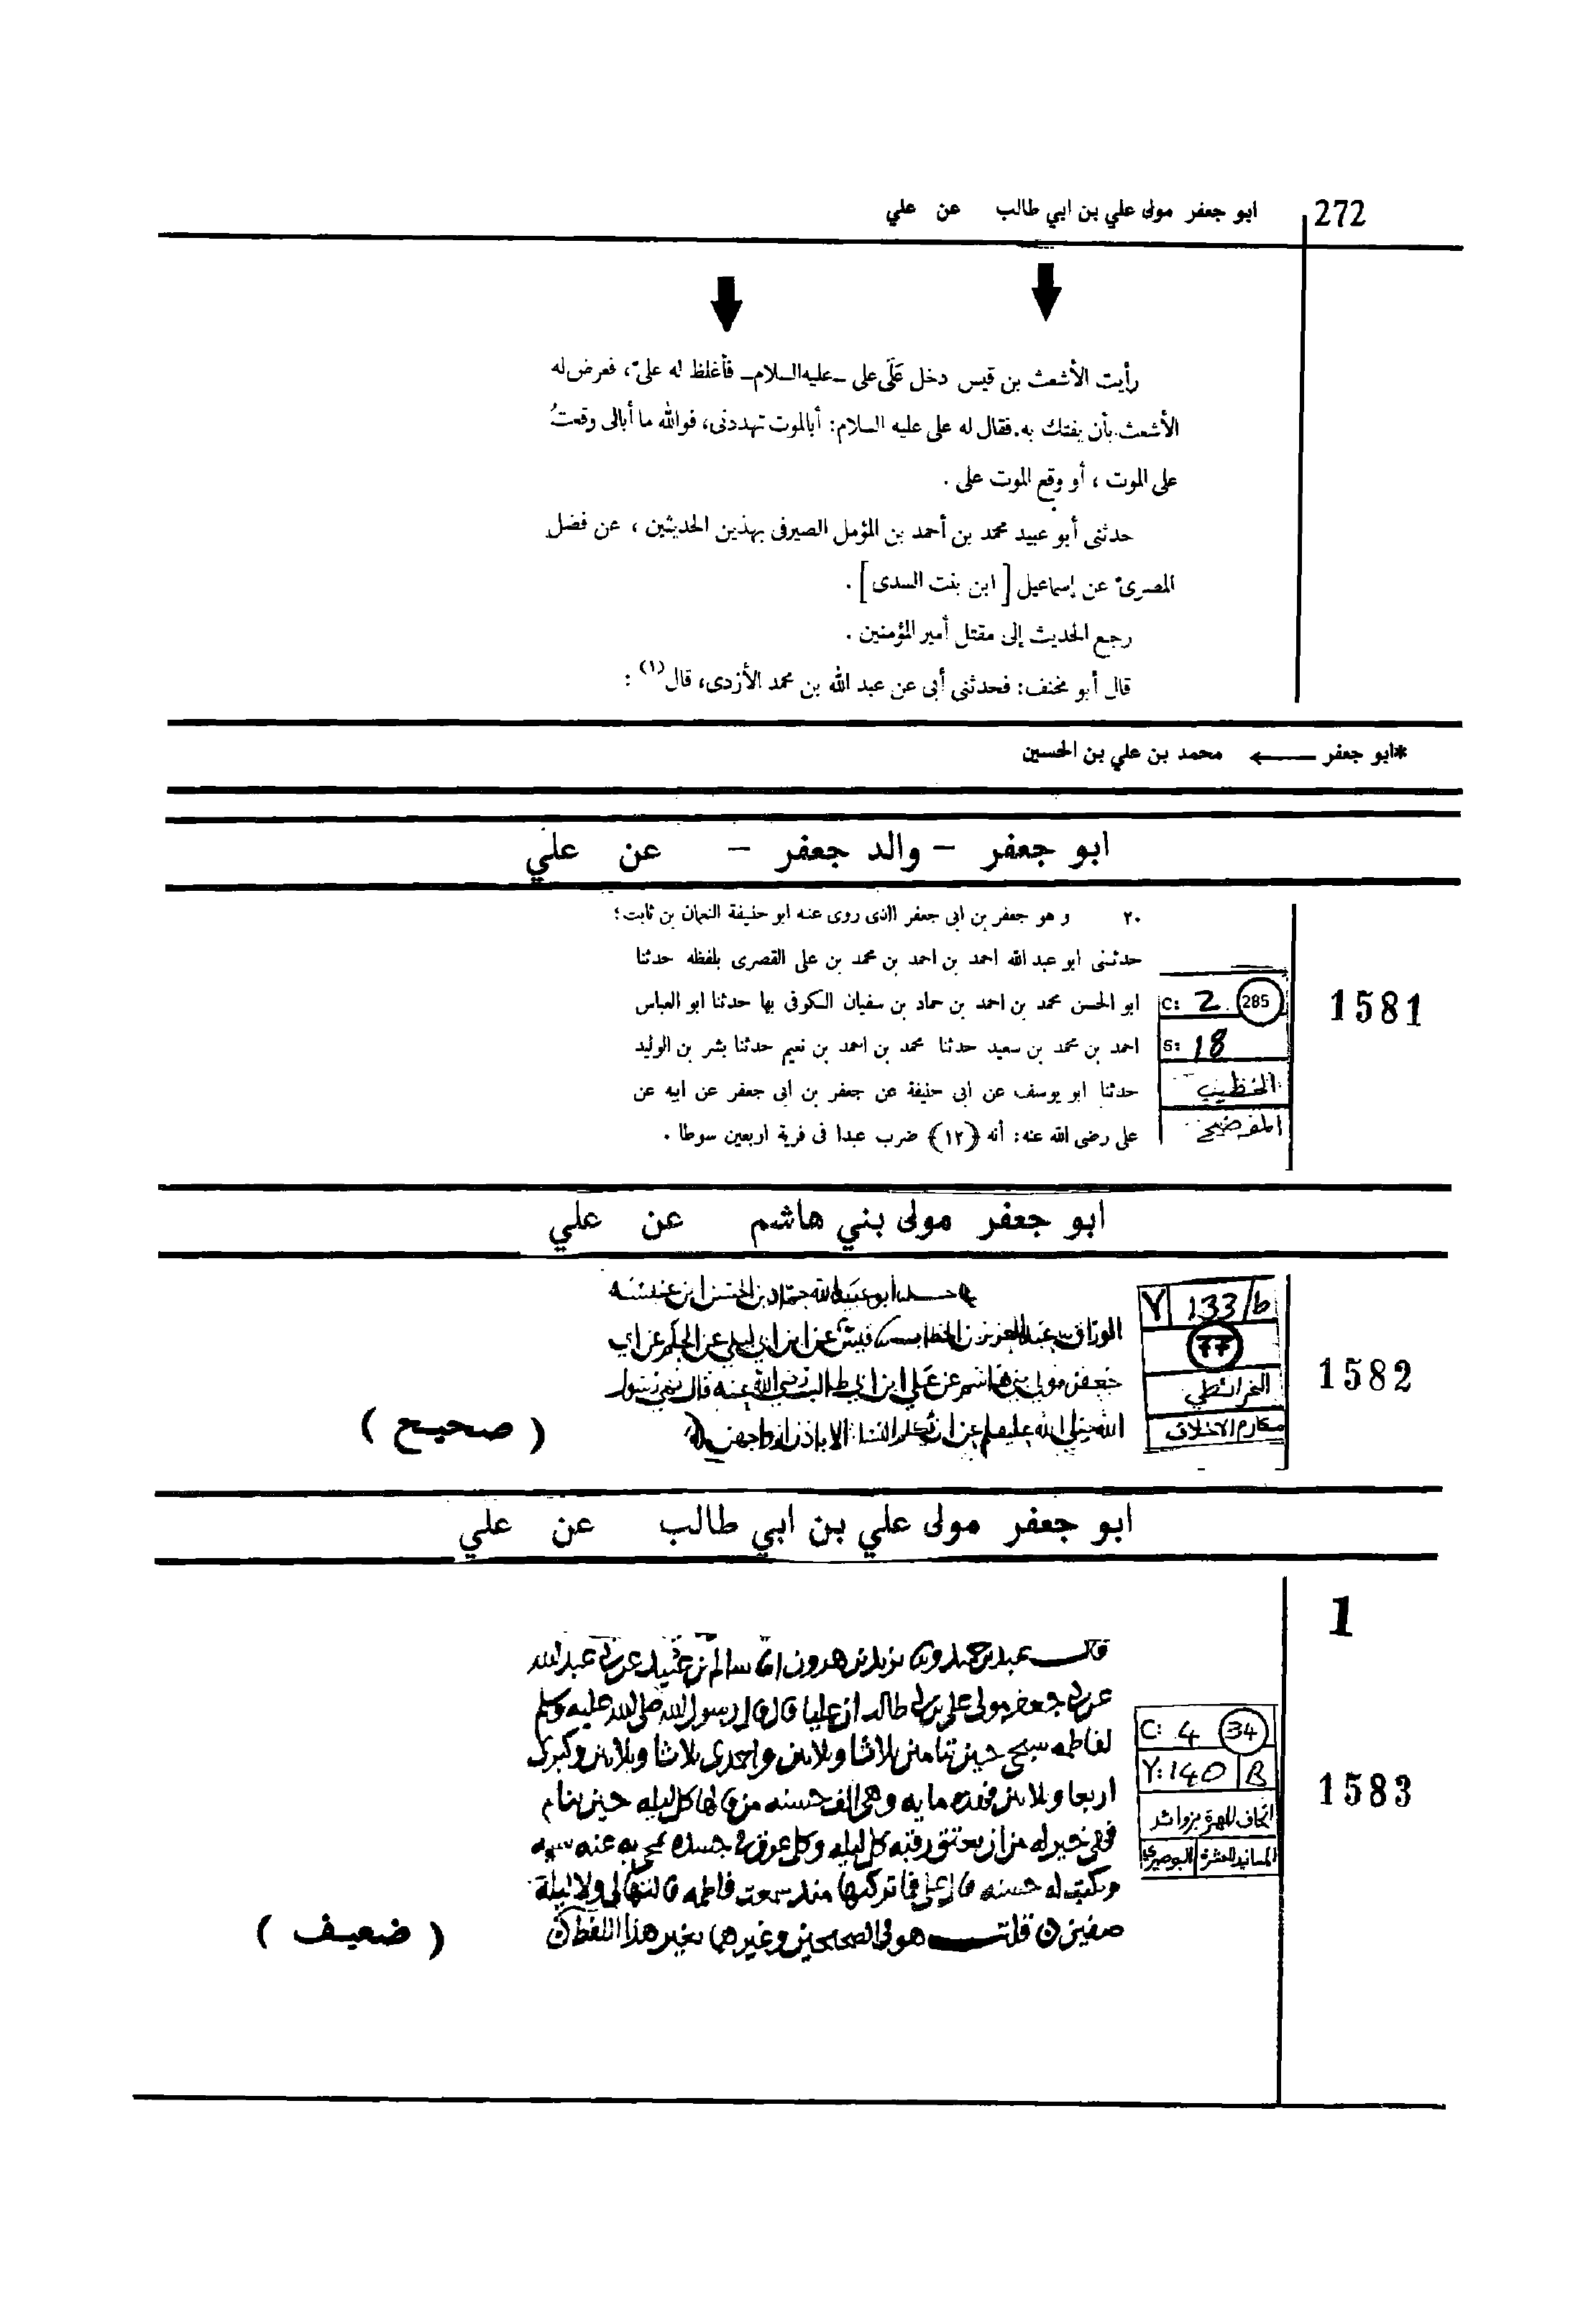 272
ابو جعفر مولى علي بن ابي طالب عن علي
رأيت الأشعث بن قيس دخل عَلَى على -عليه السلام- فأغلظ له علىّ، فعرض له
الأشعث بأن يفتك به. فقال له على عليه السلام: أبالموت تهددنى، فوالله ما أبالى وقعتُ
على الموت، أو وقع الموت على.
حدثنى أبو عبيد محمد بن أحمد بن المؤمل الصيرفى بهذين الحديثين، عن فضل
المصرىّ عن إسماعيل [ابن بنت السدى].
رجع الحديث إلى مقتل أمير المؤمنين.
قال أبو مخنف: فحدثنى أبى عن عبد الله بن محمد الأزدى، قال(١):
*ابو جعفر ← محمد بن علي بن الحسين
ابو جعفر - والد جعفر - عن علي
1581
C: 2 285
S: 18
الخطيب
المفر ضح
٢٠ و هو جعفر بن ابى جعفر الذى روى عنه ابو حنيفة النعمان بن ثابت؛
حدثنى ابو عبد الله احمد بن احمد بن محمد بن على القصرى بلفظه حدثنا
ابو الحسن محمد بن احمد بن حماد بن سفيان الكوفى بها حدثنا ابو العباس
احمد بن محمد بن سعيد حدثنا محمد بن احمد بن نعيم حدثنا بشر بن الوليد
حدثنا ابو يوسف عن ابى حنيفة عن جعفر بن ابى جعفر عن ابيه عن
على رضى الله عنه: أنه (١٢) ضرب عبدا فى فرية اربعين سوطا.
ابو جعفر مولى بني هاشم عن علي
1582
Y 133/b
77
الخرائطي
مكارم الاخلاق
ابو عبيد الله حماد بن الحسن ابن عنبسه
الوراق عبد العزيز بن الخطاب قيس عن ابن ابي ليلى عن الحكم عن ابي
جعفر مولى بني هاشم عن علي ابن ابي طالب رضي الله عنه قال نهى رسول
الله صلى الله عليه وسلم عن ان تكلم النسا الا باذن ازواجهن
(صحيح)
ابو جعفر مولى علي بن ابي طالب عن علي
1
1583
C: 4 34
Y: 140 B
اتحاف المهرة بزوائد
المسانيد العشرة البوصيري
قال عبد بن حميد يزيد بن هرون سالم بن عبيد عن ابى عبد الله
عن ابى جعفر مولى على بن ابى طالب ان عليا قال قال رسول الله صلى الله عليه وسلم
لفاطمه سبحى حين تنامين ثلاثا وثلاثين واحمدى ثلاثا وثلاثين وكبرى
اربعا وثلاثين فهذه مايه وهى الف حسنه من قالها كل ليله حين ينام
فهى خير له من ان يعتق رقبه كل ليله وكل عرق فى جسده يمحى به عنه سيه
ويكتب له حسنه قال على فما تركتها منذ سمعت فاطمه قالتها لى ولا ليلة
صفين قلت هو فى الصحيحين وغيرهما بغير هذا اللفظ
(ضعيف)